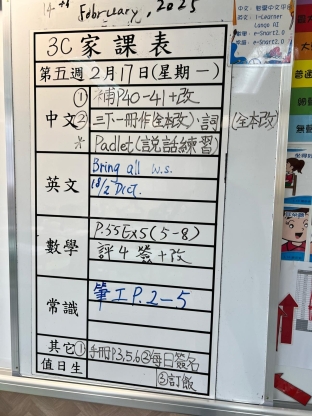 14 -
February, 2025
3C 家課表
第五週2月17日(星期一)
中文
① 補P40-41+改
② 三下一冊作(全本改)、詞
(全本改)
※ Padlet(說話練習)
英文
Bring all w.s.
18/2 Dict.
數學
P.55Ex5(5-8)
評4 +改
常識
筆工P.2-5
其它
① 手冊P3,5,6 ②每日簽名
③訂飯
值日生
中文:
英文: i-Learner